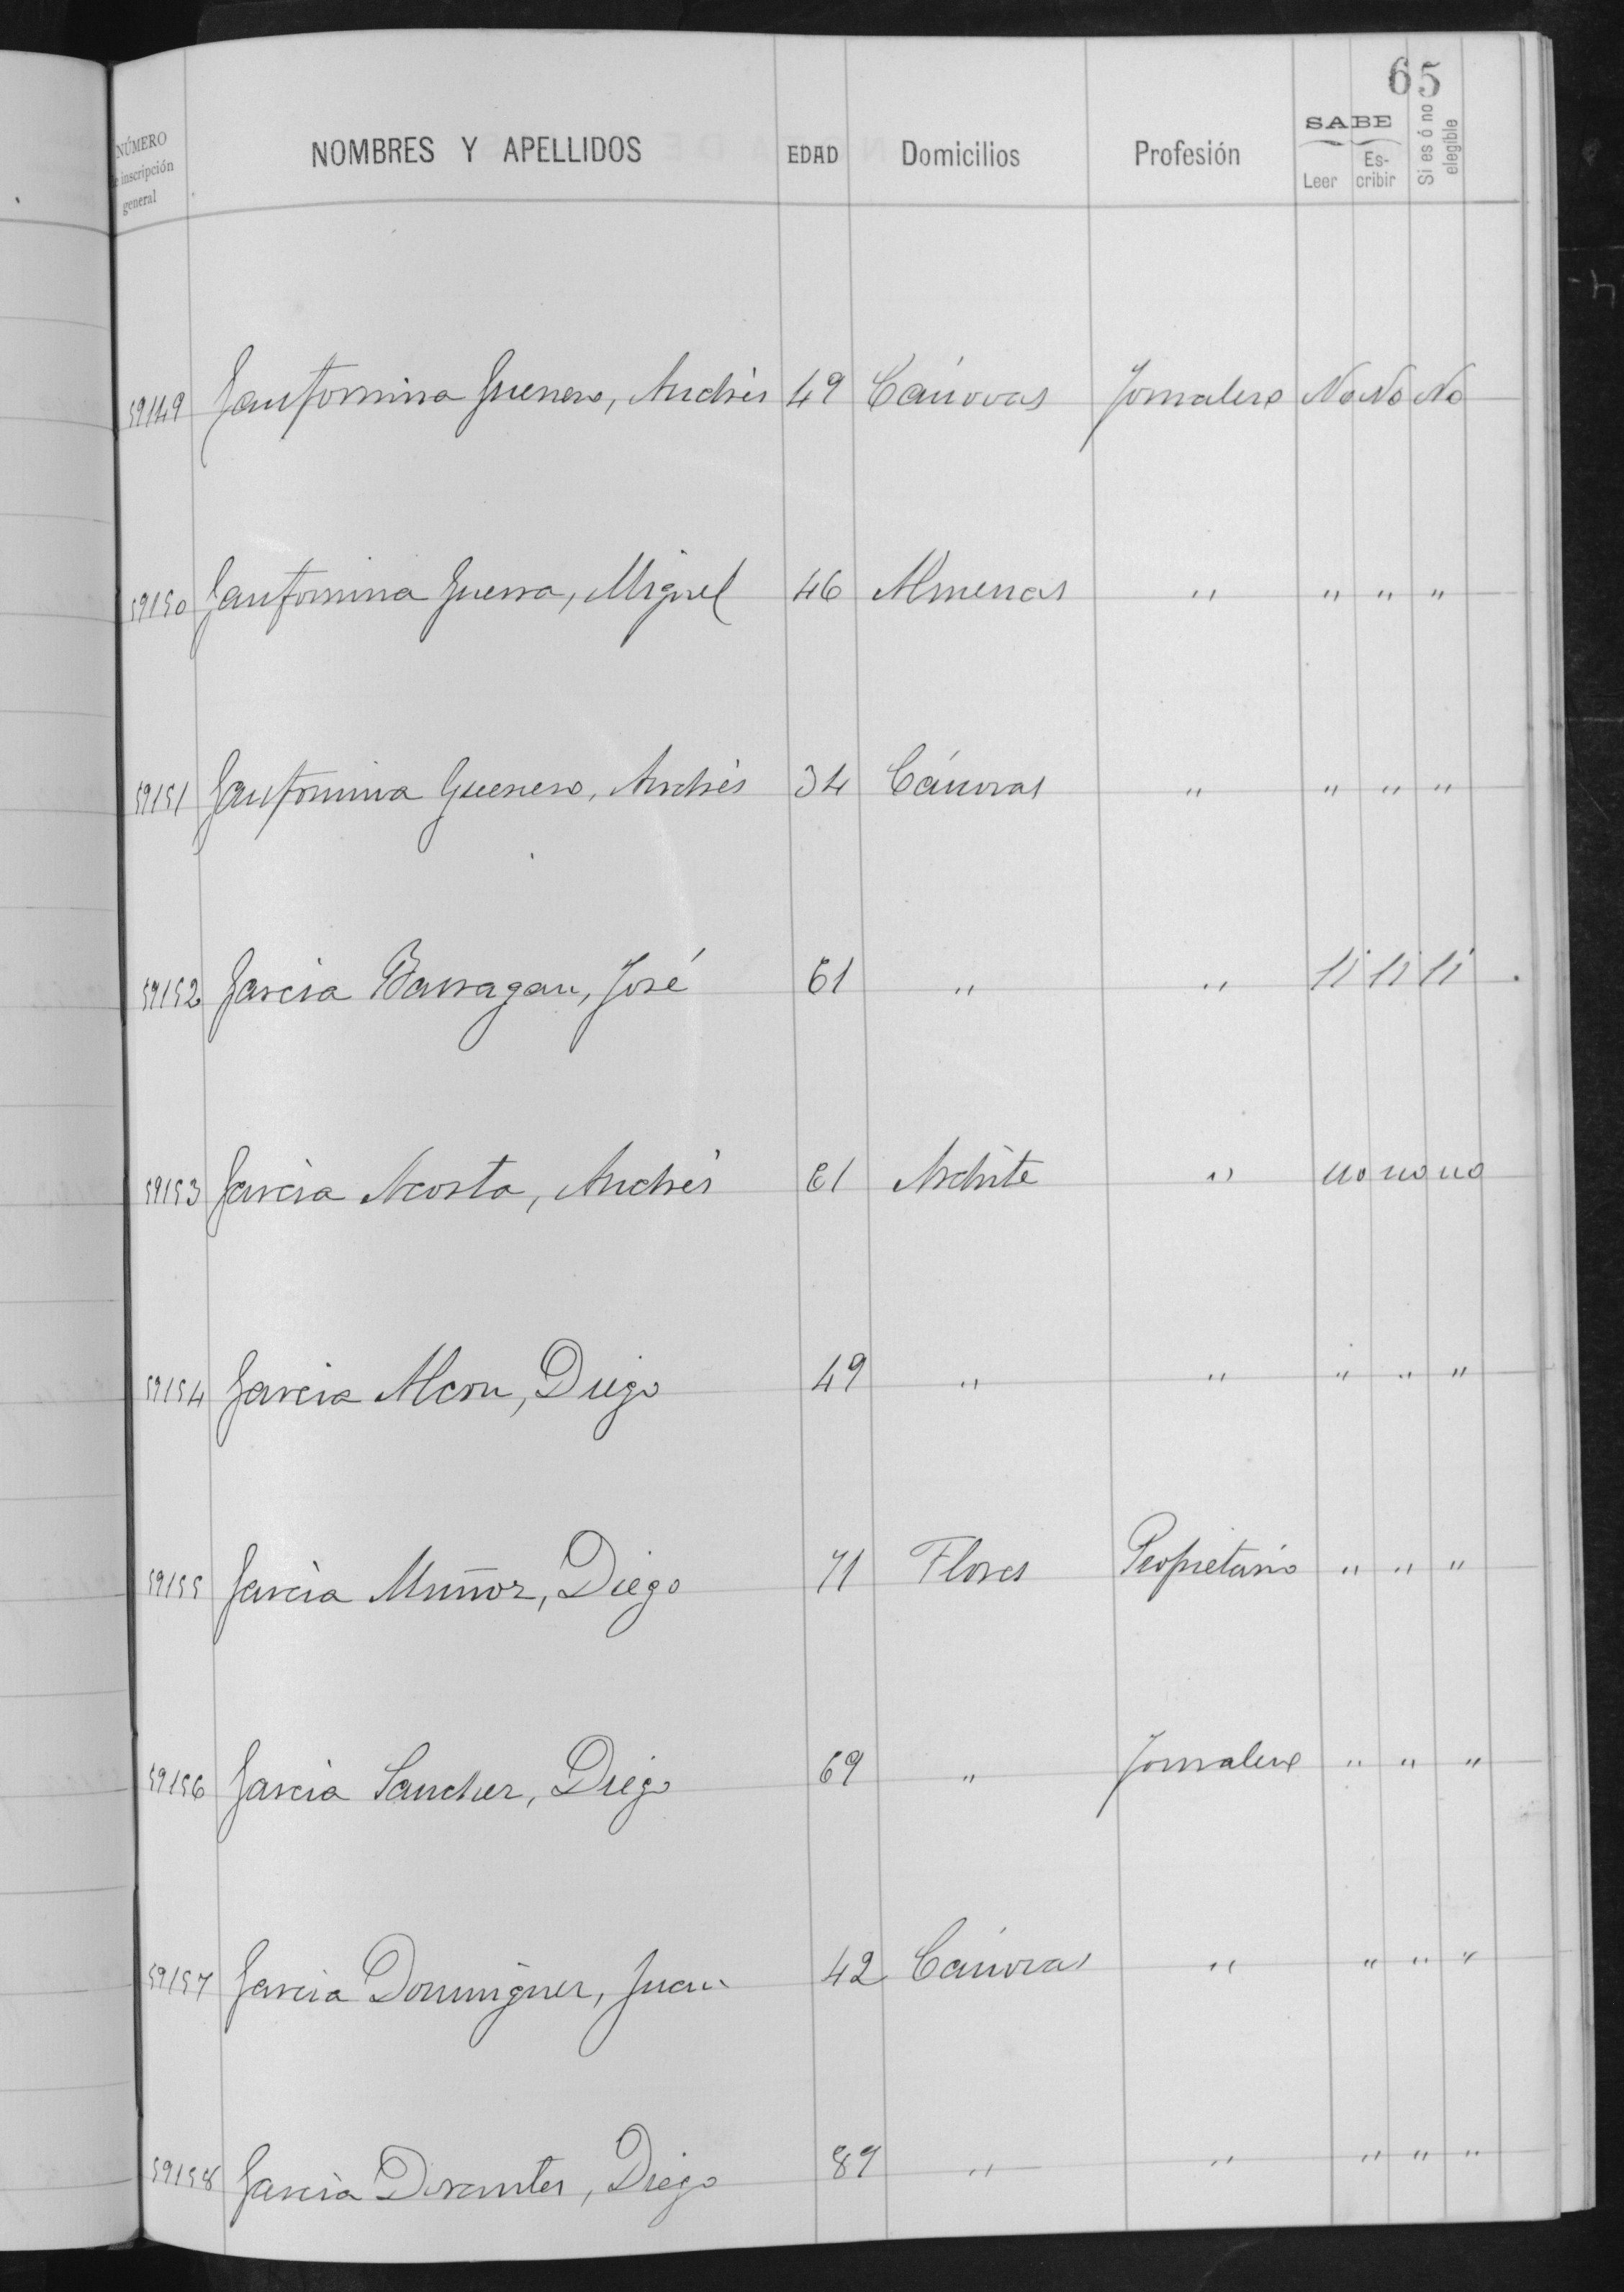 65
NÚMERO
inscripción
general
NOMBRES Y APELLIDOS
EDAD
Domicilios
Profesión
SABE
Leer
Es-
cribir
Si es ó no
elegible
59149 Guerrero, Andrés 49 Cánovas Jornalero No No No
59150 Guerra, Miguel 46 Almenas " " " "
59151 Guerrero, Andrés 34 Cánovas " " " "
59152 Garcia Barragan, José 61 " " Si Si Si
59153 Garcia Acosta, Andrés 61 Ardite " no no no
59154 Garcia Alcon, Diego 49 " " " " "
59155 Garcia Muñoz, Diego 71 Flores Propietario " " "
59156 Garcia Sanchez, Diego 69 " Jornalero " " "
59157 Garcia Dominguez, Juan 42 Cánovas " " " "
59158 Garcia Dorantes, Diego 89 " " " " "